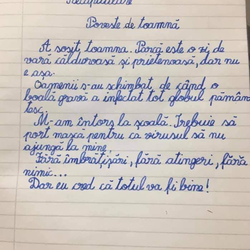 Recapitulare
Poveste de toamnă
A sosit toamna. Parcă este o zi de
vară călduroasă și prietenoasă, dar nu
e așa.
Oamenii s-au schimbat, de când o
boală gravă a infectat tot globul pămân
tesc.
M-am întors la școală. Trebuie să
port mască pentru ca virusul să nu
ajungă la mine.
Fără îmbrățișări, fără atingeri, fără
nimic...
Dar eu cred că totul va fi bine!